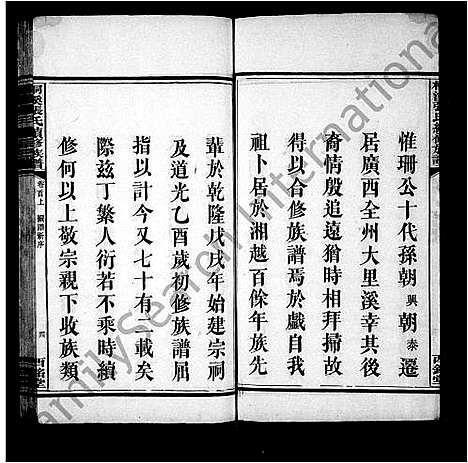 惟珊公十代孫朝興朝泰遷
居廣西全州大里溪幸其後
裔情殷追遠猶時相拜掃故
得以合修族譜焉於戲自我
祖卜居於湘越百餘年族先
輩於乾隆戊戌年始建宗祠
及道光乙酉歲初修族譜屈
指以計今又七十有二載矣
際茲丁繁人衍若不乘時續
修何以上敬宗親下收族類
氏續修族譜
卷首上
序
四
西銘堂
FamilySearch International